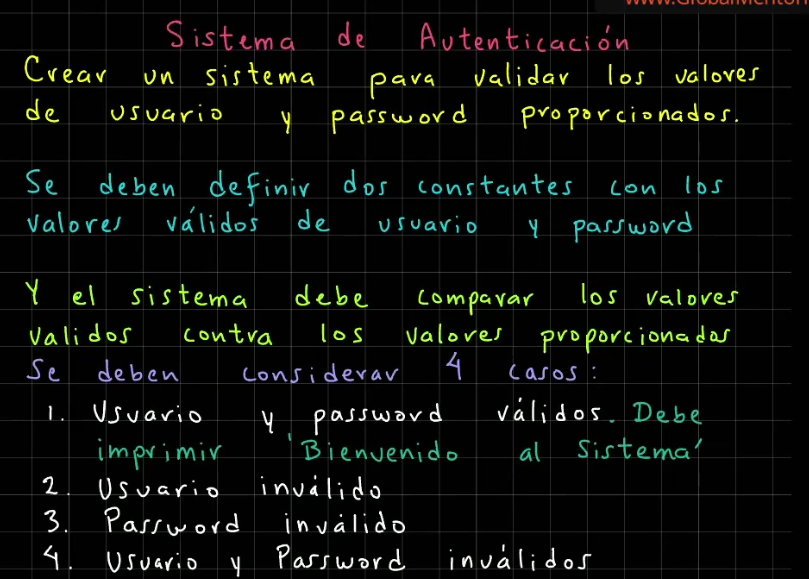 www.GlobalMentor
Sistema de Autenticación
Crear un sistema para validar los valores
de usuario y password proporcionados.
Se deben definir dos constantes con los
valores válidos de usuario y password
Y el sistema debe comparar los valores
validos contra los valores proporcionados
Se deben considerar 4 casos:
1. Usuario y password válidos. Debe
imprimir 'Bienvenido al Sistema'
2. Usuario inválido
3. Password inválido
4. Usuario y Password inválidos